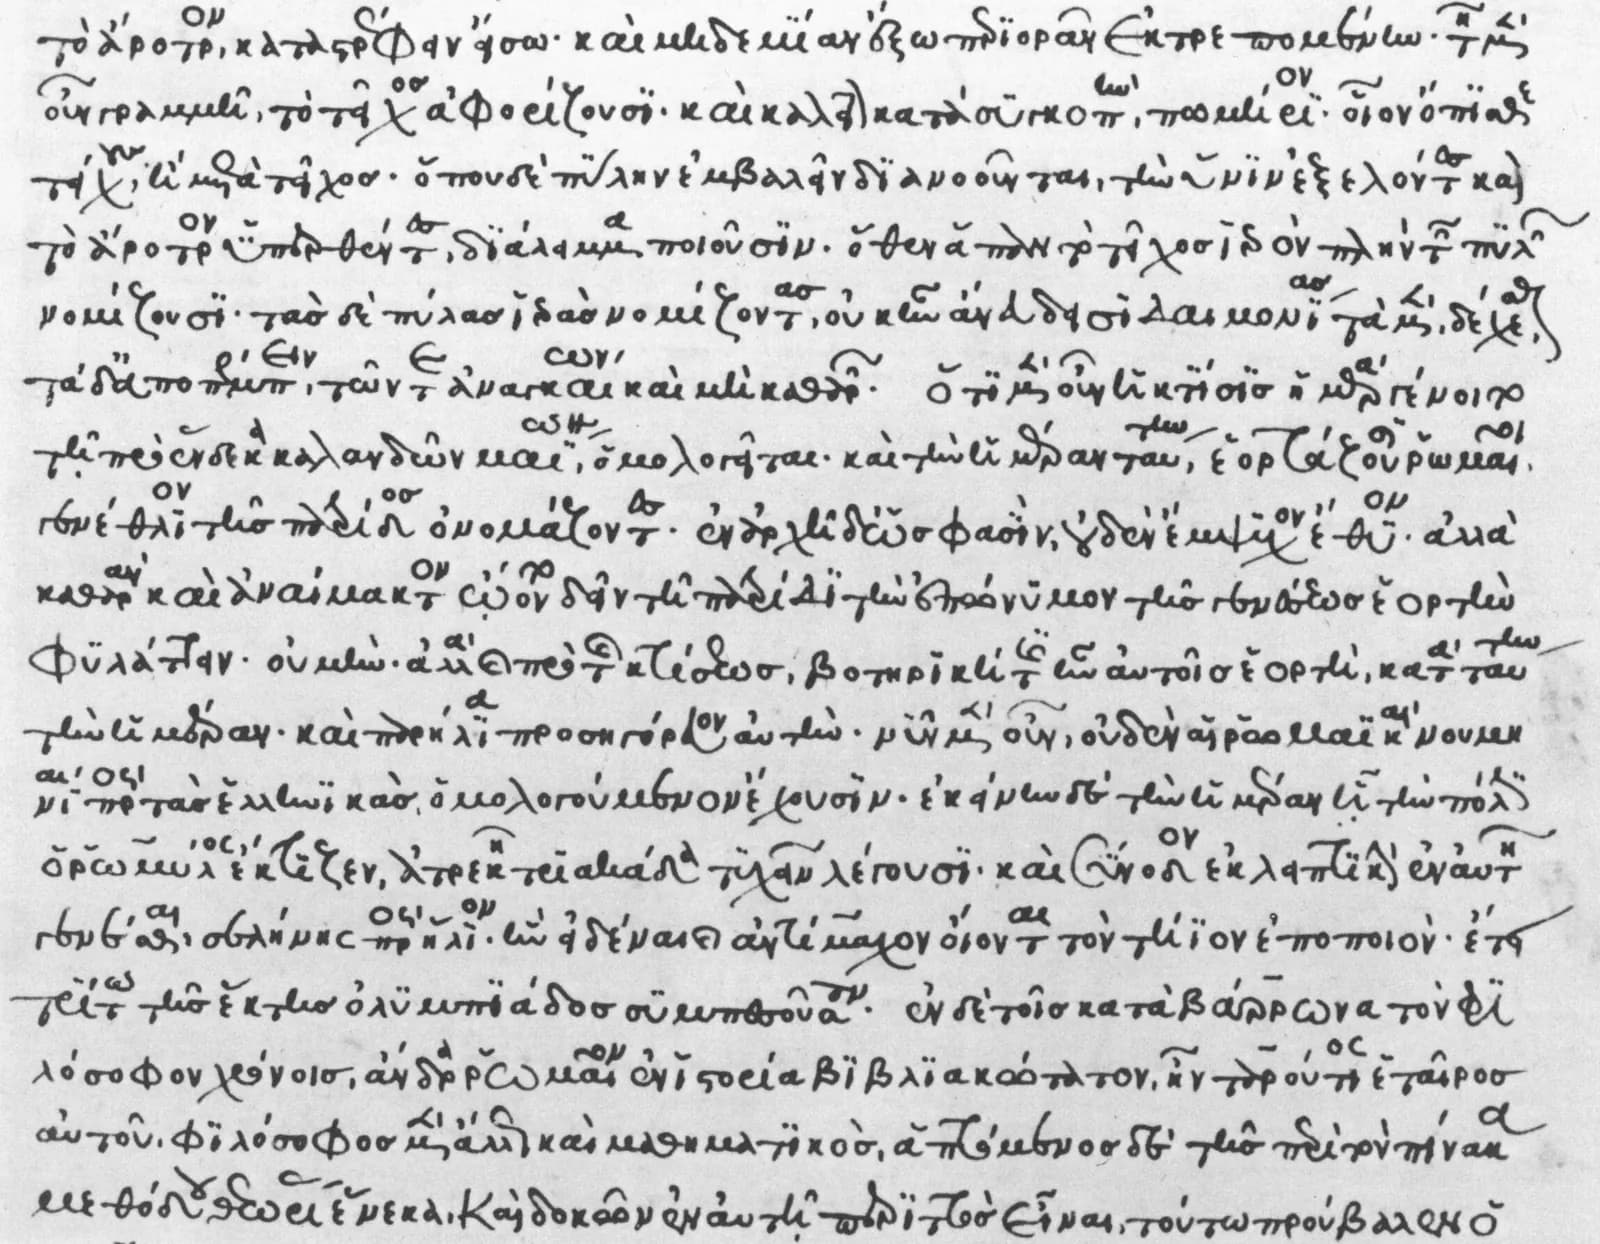 τὸ ἄροτρον, καταστρέφειν εἴσω· καὶ μηδεμίαν ἔξω περιορᾶν ἐκτρεπομένην· τῇ μὲν
οὖν γραμμῇ, τὸ τεῖχος ἀφορίζουσι· καὶ καλεῖται κατὰ συγκοπὴν, πωμήριον· οἷον ὄπισθεν
τείχους, ἢ μετὰ τεῖχος· ὅπου δὲ πύλην ἐμβαλεῖν διανοοῦνται, τὴν ὕνιν ἐξελόντες καὶ
τὸ ἄροτρον ὑπερθέντες, διάλειμμα ποιοῦσιν· ὅθεν ἅπαν τὸ τεῖχος ἱερὸν πλὴν τῶν πυλῶν
νομίζουσι· τὰς δὲ πύλας ἱερὰς νομίζοντας, οὐκ ἦν ἄνευ δεισιδαιμονίας τὰ μὲν, δέχεσθαι,
τὰ δ' ἀποπέμπειν, τῶν τε ἀναγκαίων καὶ μὴ καθαρῶν· Ὅτι μὲν οὖν ἡ κτίσις ἡμέρᾳ γένοιτο
τῇ πρὸ ἕνδεκα καλανδῶν μαΐων, ὁμολογεῖται· καὶ τὴν ἡμέραν ταύτην, ἑορτάζουσι ῥωμαῖοι,
γενέθλιον τῆς πατρίδος ὀνομάζοντες· ἐν ἀρχῇ δὲ ὥς φασιν, οὐδὲν ἔμψυχον ἔθυον· ἀλλὰ
καθαρὰν καὶ ἀναίμακτον ᾤοντο δεῖν τῇ πατρίδι τὴν ἐπώνυμον τῆς γενέσεως ἑορτὴν
φυλάττειν· οὐ μὴν· ἀλλὰ καὶ πρὸ τῆς κτίσεως, βοτηρική τις ἦν αὐτοῖς ἑορτὴ, κατὰ ταύτην
τὴν ἡμέραν· καὶ παρήλια προσηγόρευον αὐτὴν· νῦν μὲν οὖν, οὐδὲν αἱ ῥωμαϊκαὶ νουμη
νίαι πρὸς τὰς ἑλληνικὰς, ὁμολογούμενον ἔχουσιν· ἐκείνην δὲ τὴν ἡμέραν ᾗ τὴν πόλιν
ὁ ῥωμύλος ἔκτιζεν, ἀτρεκῆ τριακάδα τυχεῖν λέγουσι· καὶ σύνοδον ἐκλειπτικὴν ἐν αὐτῇ
γενέσθαι, σελήνης πρὸς ἥλιον· ἣν εἰδέναι καὶ ἀντίμαχον οἴονται τὸν τήϊον ἐποποιὸν· ἔτει
τρίτῳ τῆς ἕκτης ὀλυμπιάδος συμπεσοῦσαν· ἐν δὲ τοῖς κατὰ βάρρωνα τὸν φι
λόσοφον χρόνοις, ἄνδρα ῥωμαίων ἐν ἱστορίᾳ βιβλιακώτατον, ἦν ταρούτιος ἑταῖρος
αὐτοῦ, φιλόσοφος μὲν ἄλλως καὶ μαθηματικὸς, ἁπτόμενος δὲ τῆς περὶ τὸν πίνακα
μεθόδου θεωρίας ἕνεκα, καὶ δοκῶν ἐν αὐτῇ περιττὸς εἶναι, τούτῳ προύβαλεν ὁ